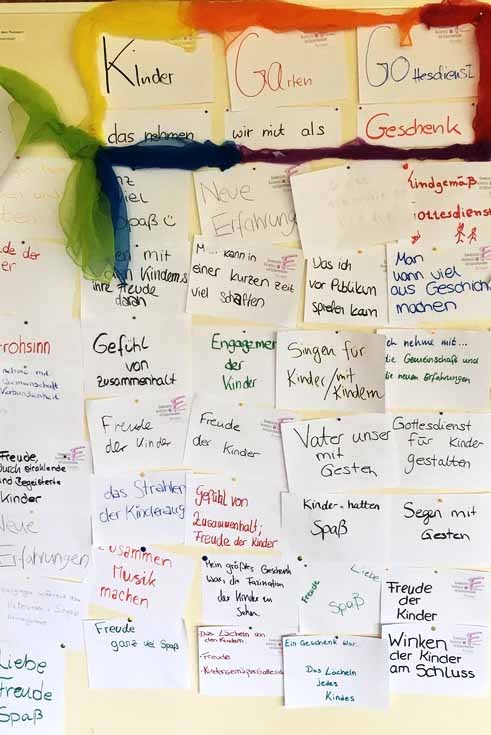 Kinder
GArten
GOttesdienst
das nehmen
wir mit als
Geschenk
viel
Spaß ☺
Neue
Erfahrung
kindgemäß
Gottesdienst
mit
den Kindern,
ihre Freude
daran
M... kann in
einer kurzen Zeit
viel schaffen
Das ich
vor Publikum
spielen kann
Man
kann viel
aus Geschich
machen
Frohsinn
Gefühl
von
zusammenhalt
Engagemen
der
Kinder
Singen für
Kinder/mit
Kindern
ich nehme mit...
die Gemeinschaft und
die neuen Erfahrungen
Freude
der Kinder
Freude
der Kinder
Vater unser
mit
Gesten
Gottesdienst
für Kinder
gestalten
Freude,
durch strahlende
und begeisterte
Kinder
das Strahlen
der Kinderaug
Gefühl von
Zusammenhalt;
Freude der Kinder
Kinder hatten
Spaß
Segen mit
Gesten
Neue
Erfahrungen
Zusammen
Musik
machen
Mein größtes Geschenk
war, die Faszination
der Kinder zu
sehen
Liebe
Freude
Spaß
Freude
der
Kinder
Freude
ganz viel Spaß
Das Lächeln von
den Kindern
-Freude
Ein Geschenk war...
Das Lächeln
jedes
Kindes
Winken
der Kinder
am Schluss
Liebe
Freude
Spaß